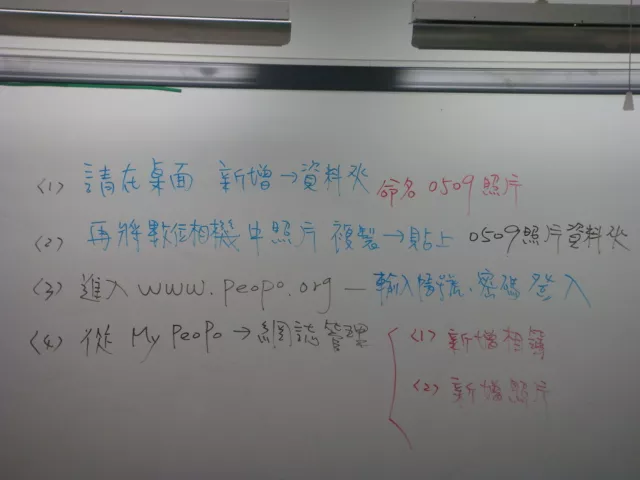 (1) 請在桌面 新增→資料夾 命名 0509照片
(2) 再將數位相機中照片 複製→貼上 0509照片資料夾
(3) 進入 www.peopo.org — 輸入帳號、密碼登入
(4) 從 My PeoPo → 網誌管理
(1) 新增相簿
(2) 新增照片